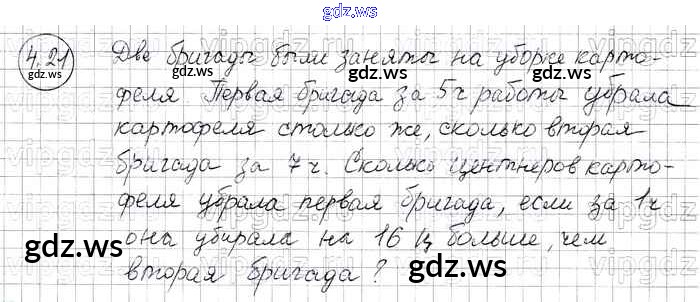 gdz.ws
4.21 Две бригады были заняты на уборке карто-
gdz.ws
феля Первая бригада за 5ч работы убрала
картофеля столько же, сколько вторая
бригада за 7 ч. Сколько центнеров карто-
феля убрала первая бригада, если за 1ч
она убирала на 16 ц больше, чем
вторая бригада?
gdz.ws
gdz.ws
gdz.ws